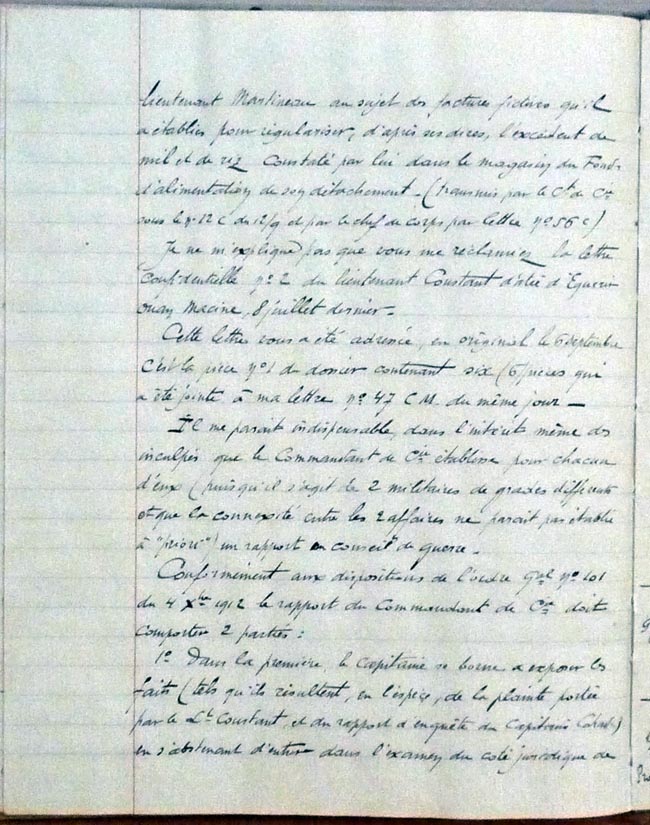 lieutenant Martineau au sujet des factures fictives qu'il
a établies pour régulariser, d'après ses dires, l'excédent de
mil et de riz constaté par lui dans le magasin du Fonds
d'alimentation de son détachement - (transmis par le Ct de Cie
sous le n° 12 C du 12/9 et par le chef de corps par lettre n° 56 C)
Je ne m'explique pas que vous me réclamiez la lettre
confidentielle n° 2 du lieutenant Constant datée d'
Macine, 8 juillet dernier -
Cette lettre vous a été adressée, en original le 6 septembre
C'est la pièce n° 1 du dossier contenant six (6) pièces qui
a été jointe à ma lettre n° 47 C.M. du même jour -
Il me parait indispensable, dans l'intérêt même des
inculpés que le Commandant de Cie établisse pour chacun
d'eux (puisqu'il s'agit de 2 militaires de grades différents
et que la connexité entre les 2 affaires ne parait pas établie
à "priori") un rapport en conseil de guerre -
Conformément aux dispositions de l'ordre Gal n° 101
du 4 Xbre 1912 le rapport du Commandant de Cie doit
comporter 2 parties :
1° Dans la première, le capitaine se borne à exposer les
faits (tels qu'ils résultent, en l'espèce, de la plainte portée
par le Lt Constant, et du rapport d'enquête du Capitaine
en s'abstenant d'entrer dans l'examen du coté juridique de